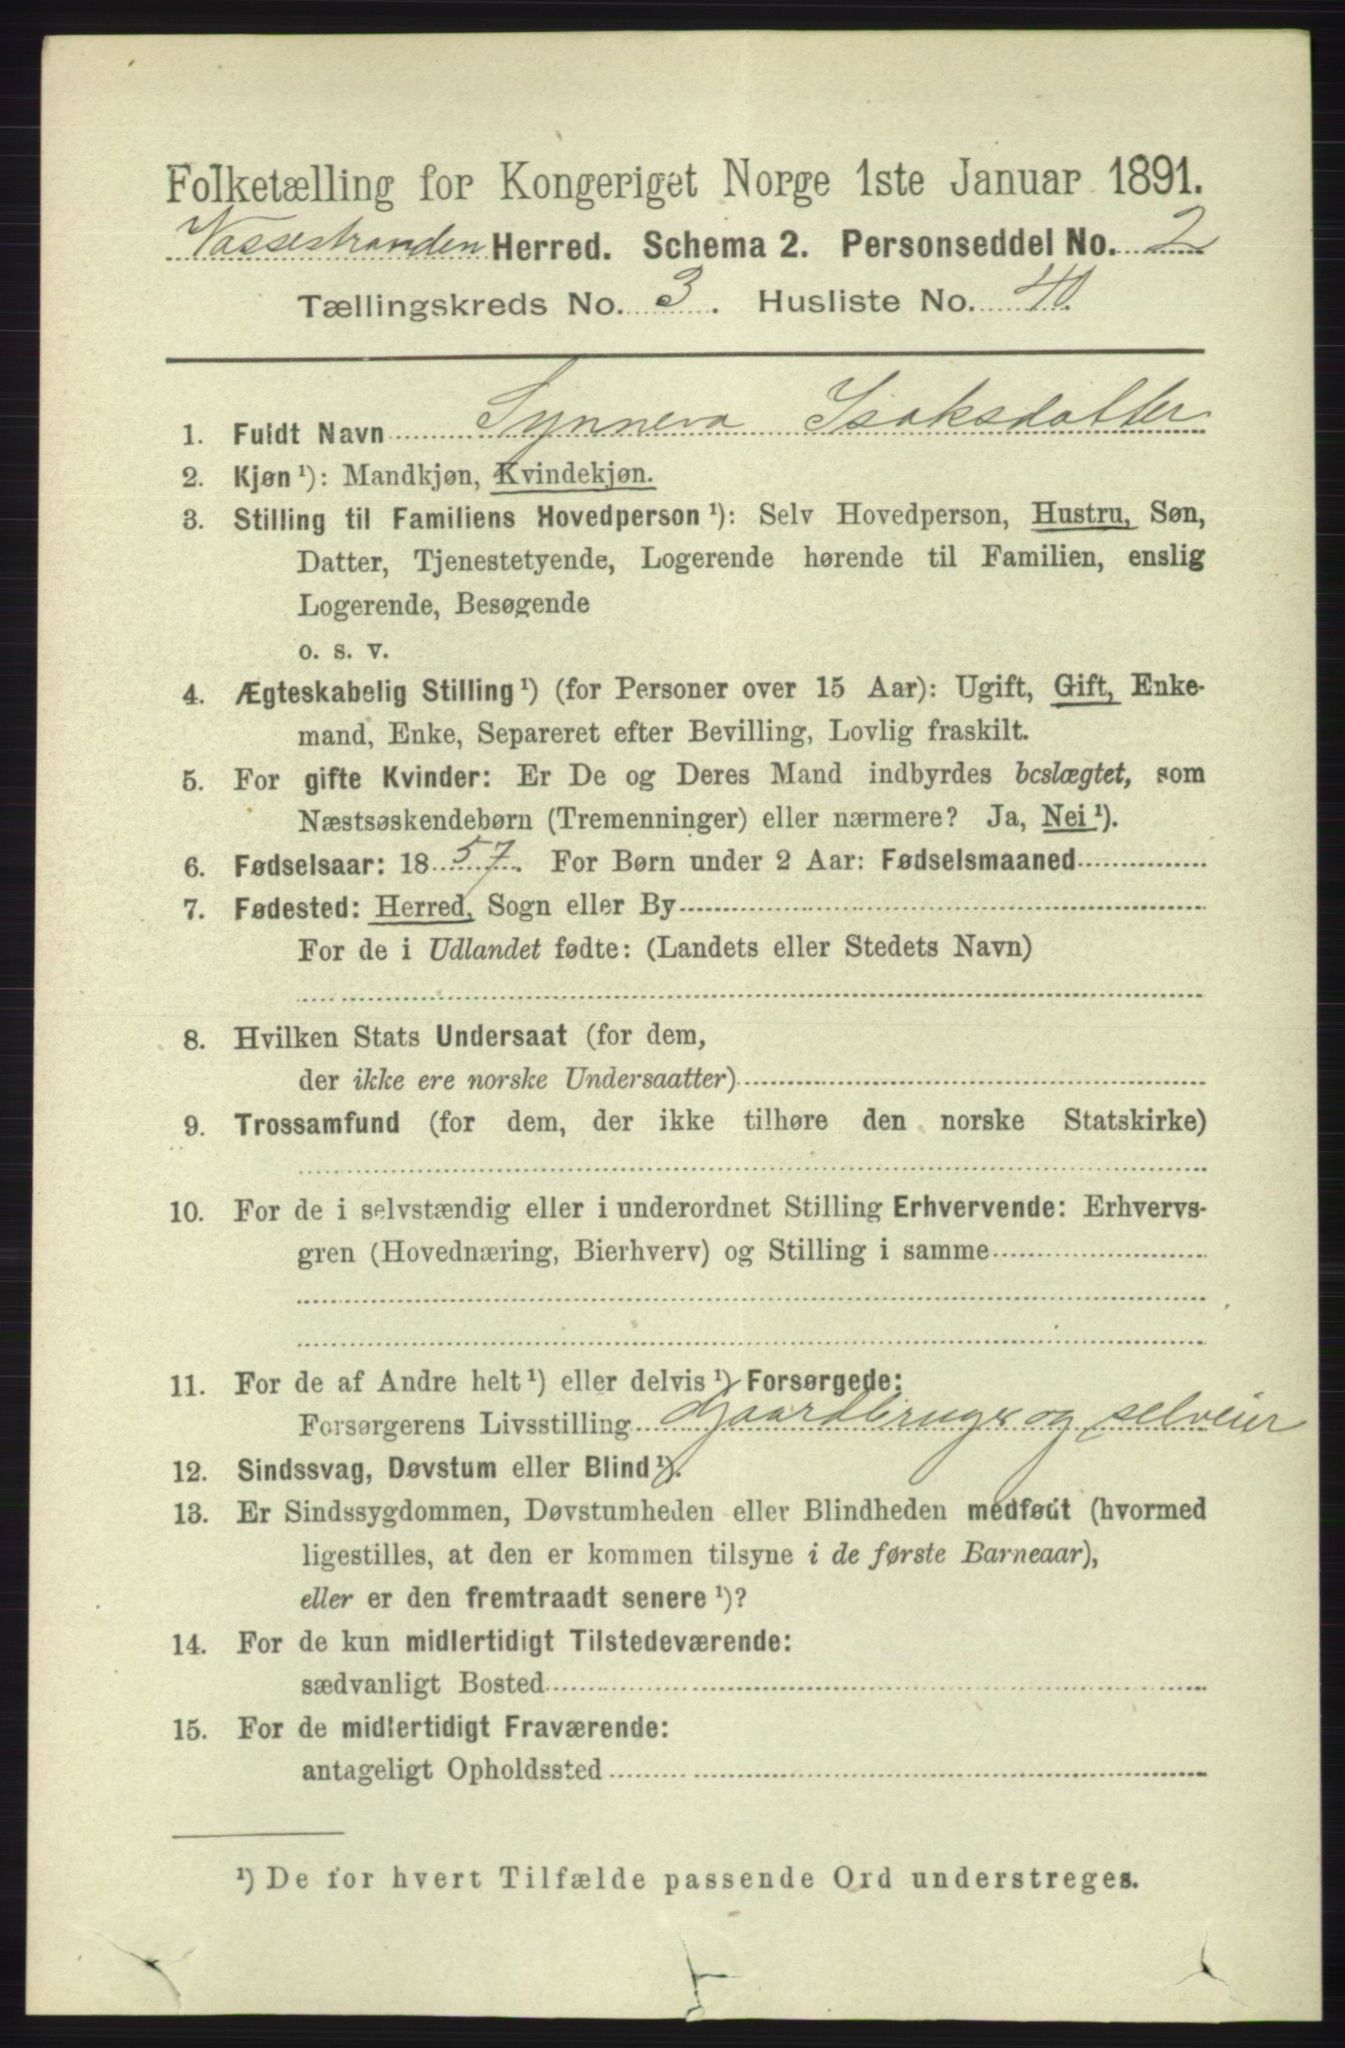 Folketælling for Kongeriget Norge 1ste Januar 1891.
Vassestranden Herred. Schema 2. Personseddel No. 2
Tællingskreds No. 3. Husliste No. 40.
1. Fuldt Navn Synneva Isaksdatter
2. Kjøn ¹): Mandkjøn, Kvindekjøn.
3. Stilling til Familiens Hovedperson ¹): Selv Hovedperson, Hustru, Søn,
Datter, Tjenestetyende, Logerende hørende til Familien, enslig
Logerende, Besøgende
o. s. v.
4. Ægteskabelig Stilling ¹) (for Personer over 15 Aar): Ugift, Gift, Enke-
mand, Enke, Separeret efter Bevilling, Lovlig fraskilt.
5. For gifte Kvinder: Er De og Deres Mand indbyrdes beslægtet, som
Næstsøskendebørn (Tremenninger) eller nærmere? Ja, Nei ¹).
6. Fødselsaar: 1857. For Børn under 2 Aar: Fødselsmaaned
7. Fødested: Herred, Sogn eller By
For de i Udlandet fødte: (Landets eller Stedets Navn)
8. Hvilken Stats Undersaat (for dem,
der ikke ere norske Undersaatter)
9. Trossamfund (for dem, der ikke tilhøre den norske Statskirke)
10. For de i selvstændig eller i underordnet Stilling Erhvervende: Erhvervs-
gren (Hovednæring, Bierhverv) og Stilling i samme
11. For de af Andre helt ¹) eller delvis ¹) Forsørgede:
Forsørgerens Livsstilling Gaardbruger og selveier
12. Sindssvag, Døvstum eller Blind ¹).
13. Er Sindssygdommen, Døvstumheden eller Blindheden medfødt (hvormed
ligestilles, at den er kommen tilsyne i de første Barneaar),
eller er den fremtraadt senere ¹)?
14. For de kun midlertidigt Tilstedeværende:
sædvanligt Bosted
15. For de midlertidigt Fraværende:
antageligt Opholdssted
¹) De for hvert Tilfælde passende Ord understreges.